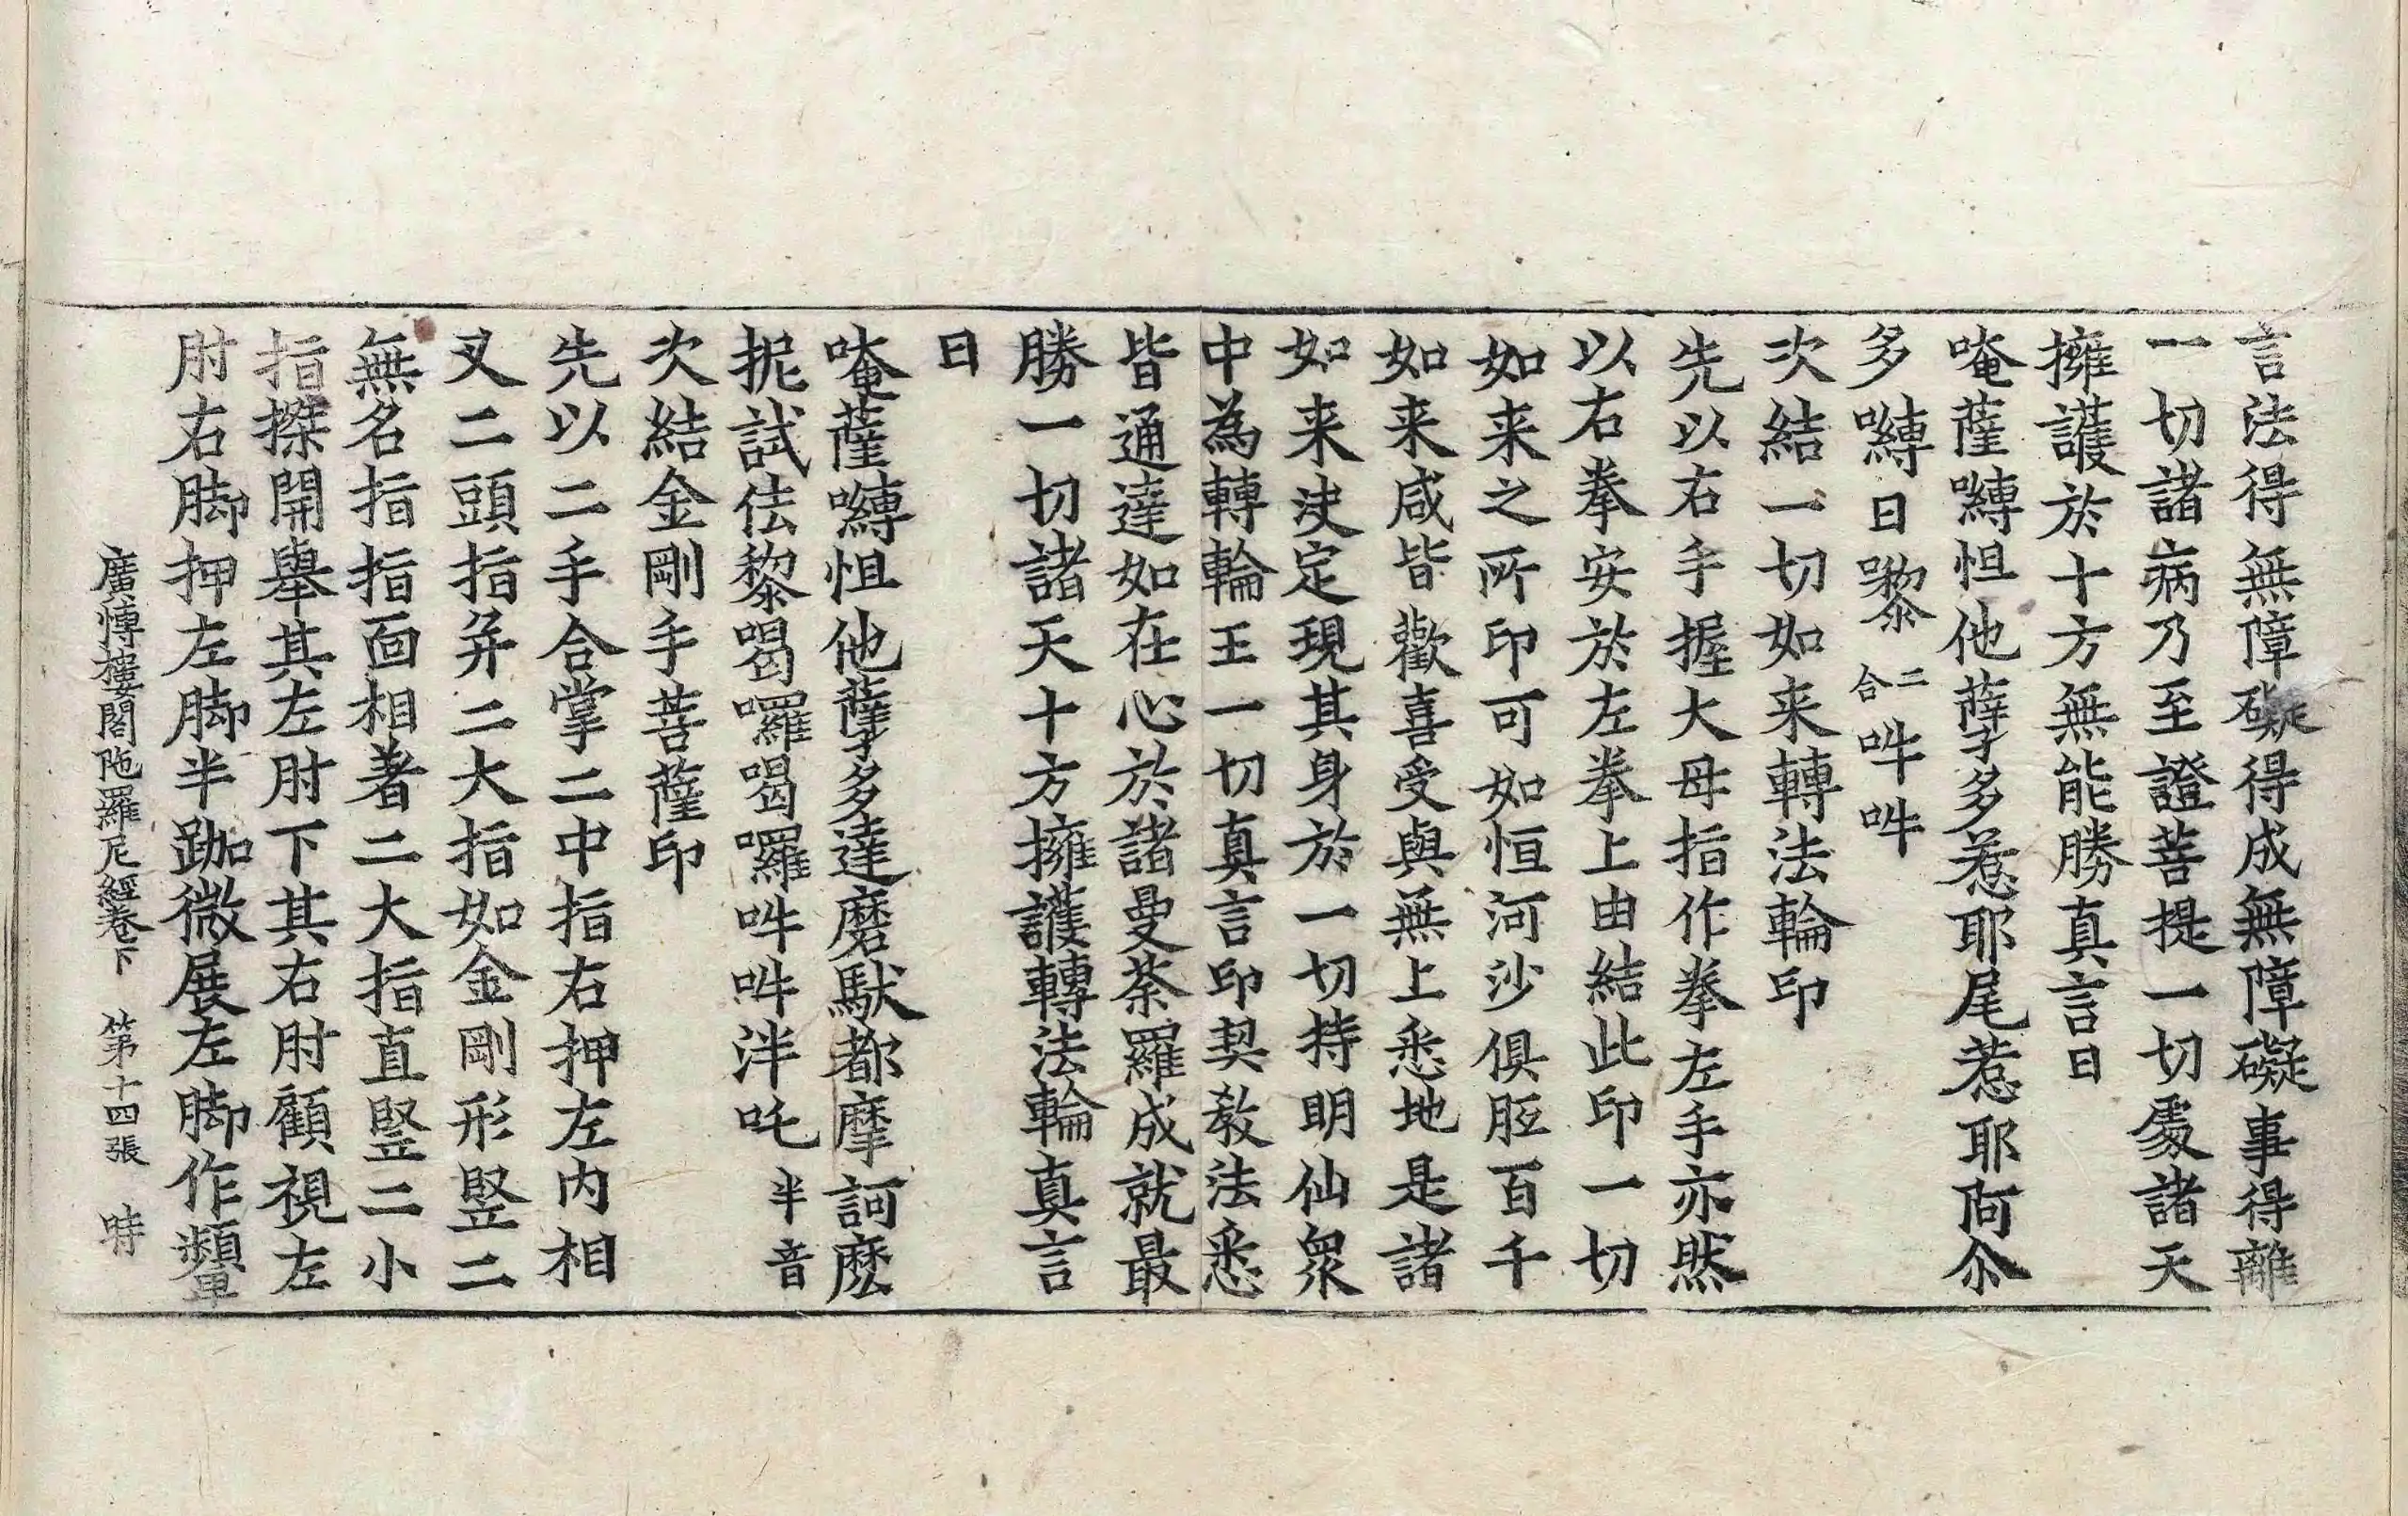 言法得無障礙得成無障礙事得離
一切諸病乃至證菩提一切處諸天
擁護於十方無能勝真言曰
唵薩嚩怛他蘖多惹耶尾惹耶阿尒
多嚩日㘑二合吽吽
次結一切如来轉法輪印
先以右手握大母指作拳左手亦然
以右拳安於左拳上由結此印一切
如来之所印可如恒河沙俱胝百千
如来咸皆歡喜受與無上悉地是諸
如来决定現其身於一切持明仙眾
中為轉輪王一切真言印契教法悉
皆通達如在心於諸曼荼羅成就最
勝一切諸天十方擁護轉法輪真言
曰
唵薩嚩怛他蘖多達磨馱都摩訶麽
抳試佉黎喝囉喝囉吽吽泮吒半音
次結金剛手菩薩印
先以二手合掌二中指右押左内相
叉二頭指并二大指如金剛形竪二
無名指指面相著二大指直竪二小
指搩開舉其左肘下其右肘顧視左
肘右脚押左脚半跏微展左脚作顰
廣愽樓閣陁羅尼經卷下 第十四張 時